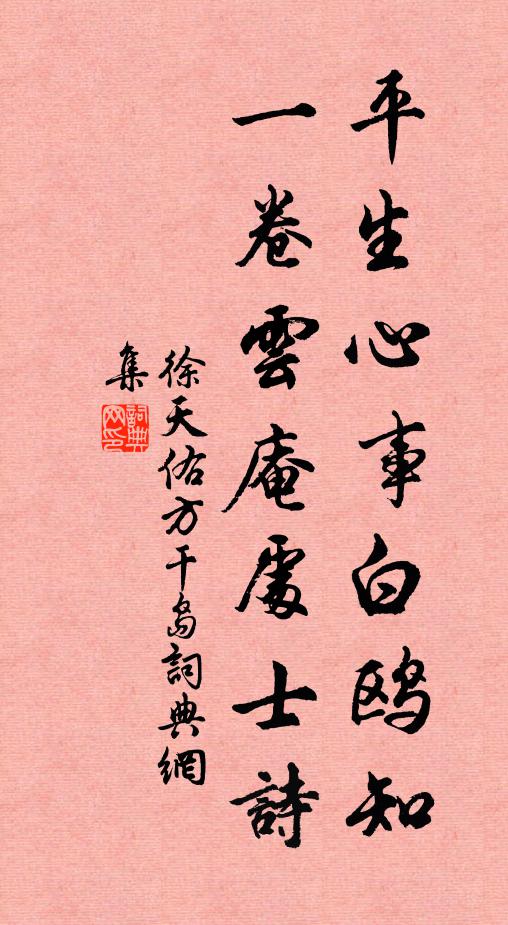 平生心事白鸥知
一卷雲庵處士詩
徐天佑方干岛詞典網
集
詞典网印